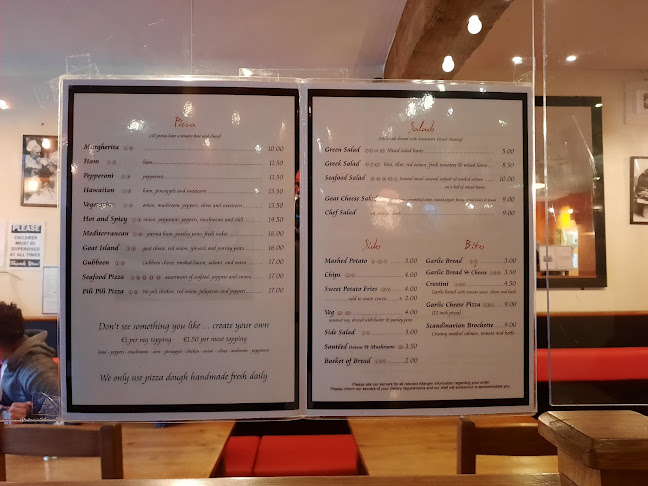 Pizza
(All pizzas have a tomato base and cheese)
Margherita 10.00
Ham ham 11.50
Pepperoni pepperoni 11.50
Hawaiian ham, pineapple and sweetcorn 13.50
Vegetarian onion, mushroom, peppers, olives and sweetcorn 13.50
Hot and Spicy onion, pepperoni, peppers, mushrooms and chilli 14.50
Mediterranean parma ham, parsley pesto, fresh rocket 16.00
Goat Island goat cheese, red onion, spinach and parsley pesto 16.00
Gubbeen Gubbeen cheese, smoked bacon, salami, and onion 17.00
Seafood Pizza assortment of seafood, peppers and onions 17.00
Pili Pili Pizza Pili pili chicken, red onion, jalapenos and peppers 17.00
Don't see something you like ... create your own
€1 per veg topping €1.50 per meat topping
ham - peppers - mushrooms - corn - pineapple - chicken - onion - olives - anchovies - pepperoni
We only use pizza dough handmade fresh daily
Salads
Green Salad Mixed salad leaves 5.00
Greek Salad Feta, olive, red onion, fresh tomatoes & mixed leaves 8.50
Seafood Salad smoked salmon 10.00
on a bed of mixed leaves
Goat Cheese Salad 9.00
Chef Salad 9.00
Sides
Mashed Potato 3.00
Chips 4.00
Sweet Potato Fries 4.00
add to main course + 2.00
Veg 4.00
seasonal veg, dressed with butter & parsley pesto
Side Salad 3.00
Sautéed Onions & Mushroom 3.50
Basket of Bread 2.00
Bites
Garlic Bread 3.00
Garlic Bread & Cheese 3.50
Crostini 4.50
Garlic bread with tomato
Garlic Cheese Pizza 9.00
(12 inch pizza)
Scandinavian Brochette 9.00
Creamy smoked salmon, tomato and herbs
Please ask our servers for all relevant Allergen information regarding your order
Please inform our servers of your dietary requirements and our chef will endeavour to accommodate you.
PLEASE
CHILDREN
MUST BE
SUPERVISED
AT ALL TIMES
Thank You!